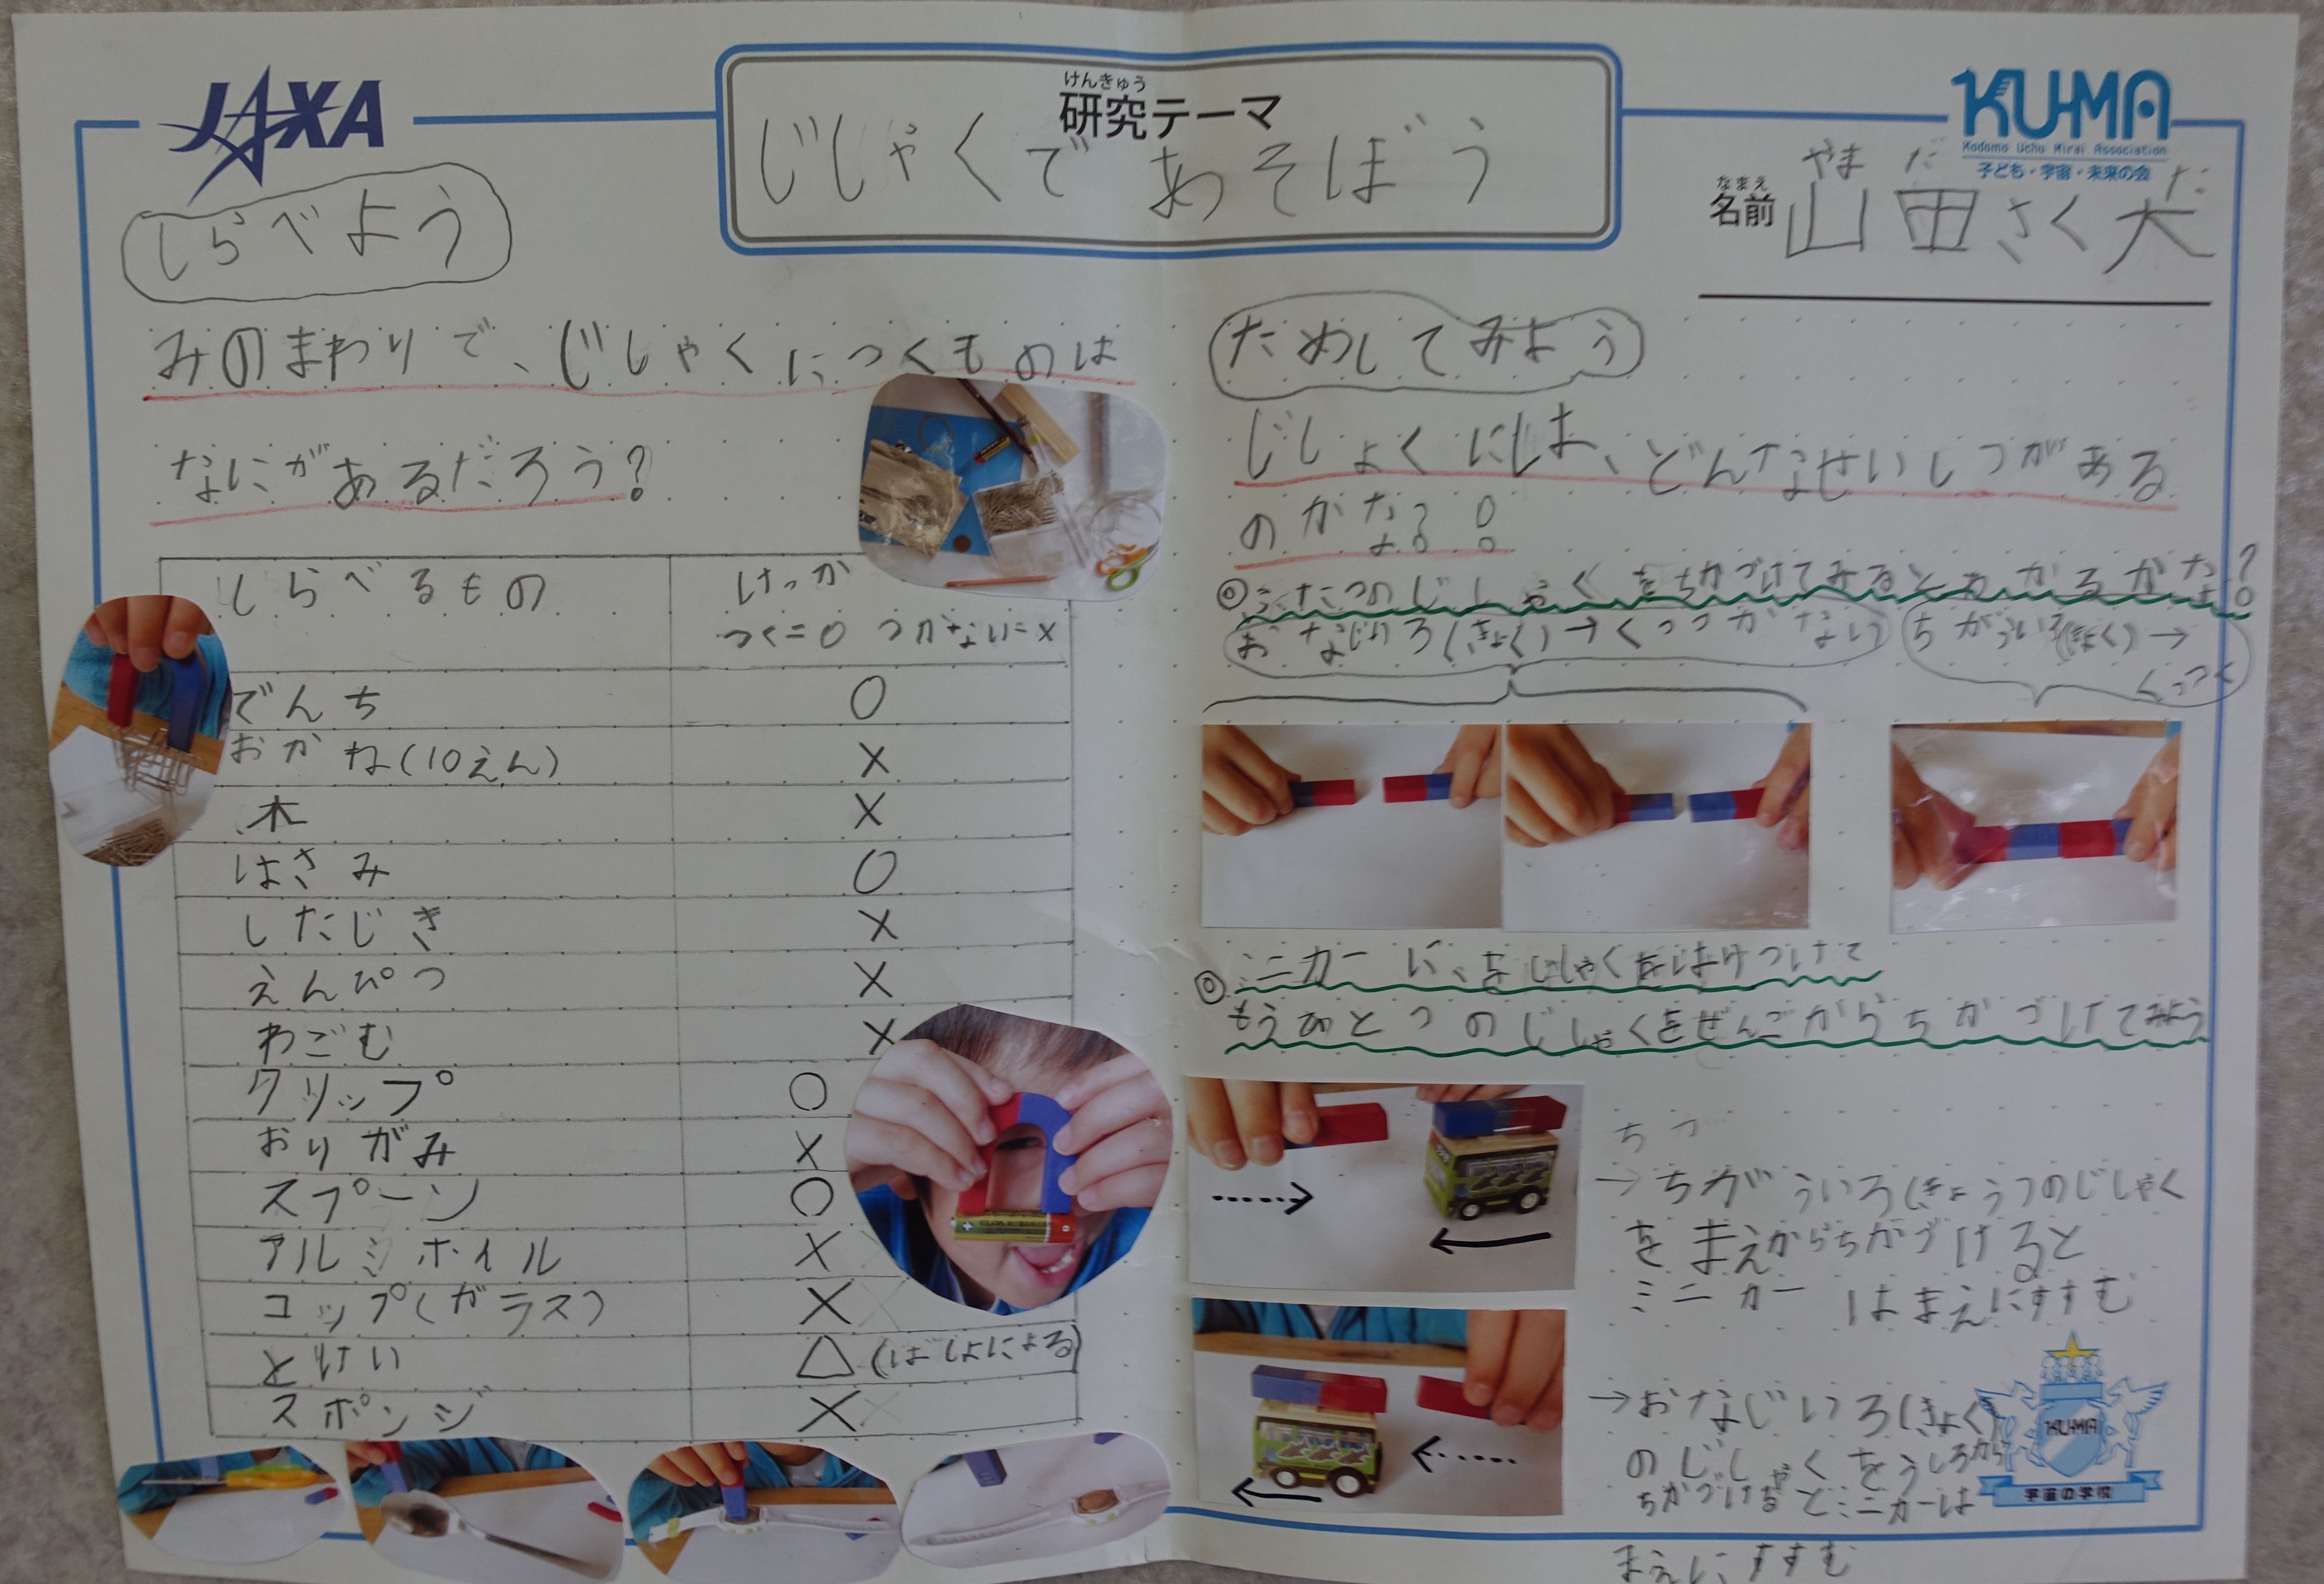 JAXA
けんきゅう
研究テーマ
じしゃくであそぼう
KU-MA
Kodomo Uchu Mirai Association
子ども・宇宙・未来の会
なまえ
名前
やまだ だ
山田さく大
しらべよう
みのまわりで、じしゃくにつくものは
なにがあるだろう?
しらべるもの けっか
つく=○ つかない=×
でんち ○
おかね(10えん) ×
木 ×
はさみ ○
したじき ×
えんぴつ ×
わごむ ×
クリップ ○
おりがみ ×
スプーン ○
アルミホイル ×
コップ(ガラス) ×
とけい △(ばしよによる)
スポンジ ×
ためしてみよう
じしょくにしは、どんなせいしつがある
のかな?
◎ふたつのじしゃくをちかづけてみるとわかるかな?
おなじいろ(きょく)→くっつかない
ちがういろ(きょく)→
くっつく
◎ミニカーに、をじしゃくをはけつけて
もうひとつのじしゃくをぜんごからちかづけてみよう
ちか
→ちがういろ(きょうつのじしゃく
をまえからちかづけると
ミニカーはまえにすすむ
→おなじいろ(きょく)
のじしゃくをうしろから
ちかづけるとミニカーは
まえにすすむ
KU-MA
宇宙の学校